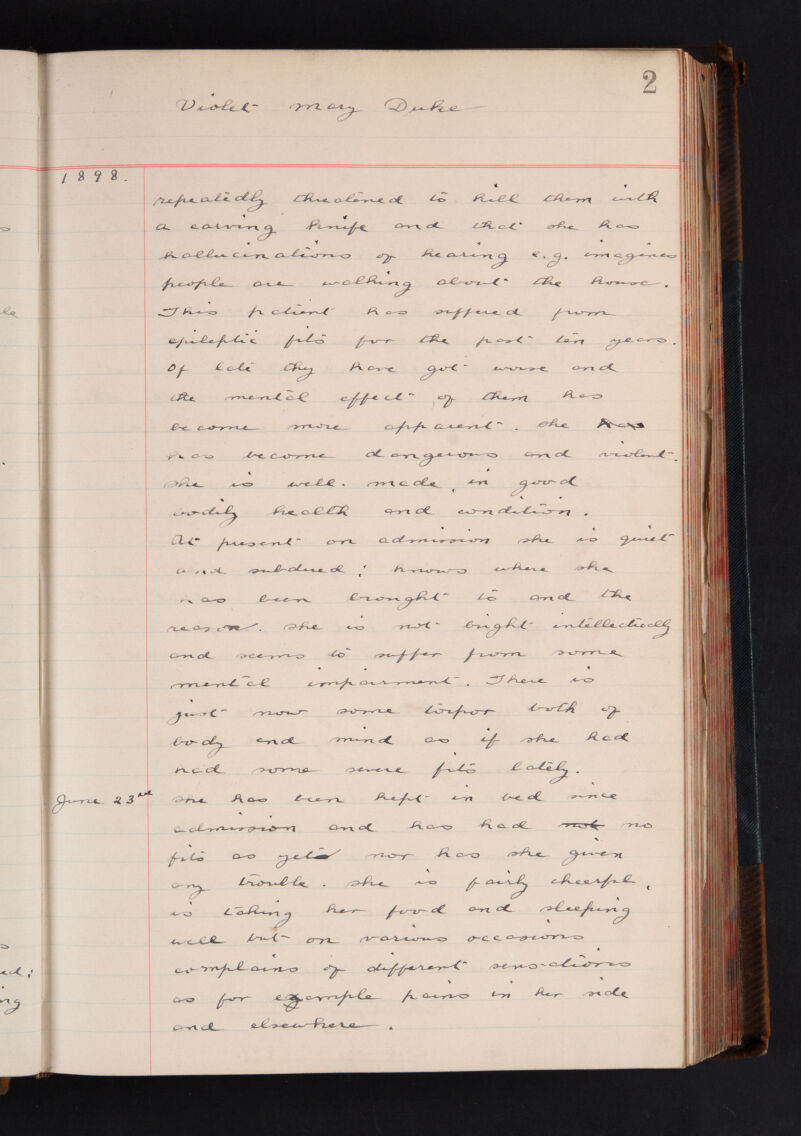 2
Violet Mary Duke
1898.
repeatedly threatened to kill them with
a carving knife and that she has
hallucinations of hearing e.g. imagines
people are walking about the house.
This patient has suffered from
epileptic fits for the past ten years.
Of late they have got worse and
the mental effect of them has
become more apparent. She has
has become dangerous and violent.
She is well-made, in good
bodily health and condition.
At present on admission she is quiet
and subdued; knows where she
has been brought to and the
reason. She is not bright intellectually
and seems to suffer from some
mental impairment. There is
just now some torpor both of
body and mind as if she had
had some severe fits lately.
June 23rd She has been kept in bed since
admission and has had not no
fits as yet nor has she given
any trouble. She is fairly cheerful,
is taking her food and sleeping
well but on various occasions
complains of different sensations
as for example pains in her side
and elsewhere.